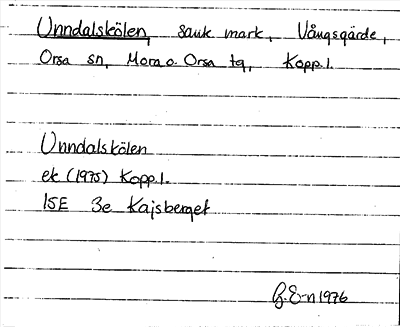 Unndalskölen, sank mark, Vångsgärde,
Orsa sn, Mora o. Orsa tg, Kopp.l.
Unndalskölen
ek (1975) Kopp.l.
15E 3e Kajsberget
G.E-n 1976